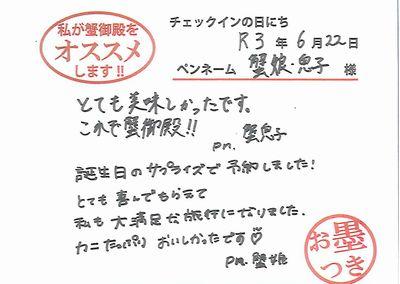 私が蟹御殿を
オススメ
します!!
チェックインの日にち
R3年6月22日
ペンネーム 蟹娘・息子 様
とても美味しかったです。
これぞ蟹御殿!!
pn. 蟹息子
誕生日のサプライズで予約しました!
とても喜んでもらえて
私も大満足な旅行になりました.
カニたっぷりおいしかったです♡
pn. 蟹娘
お墨
つき